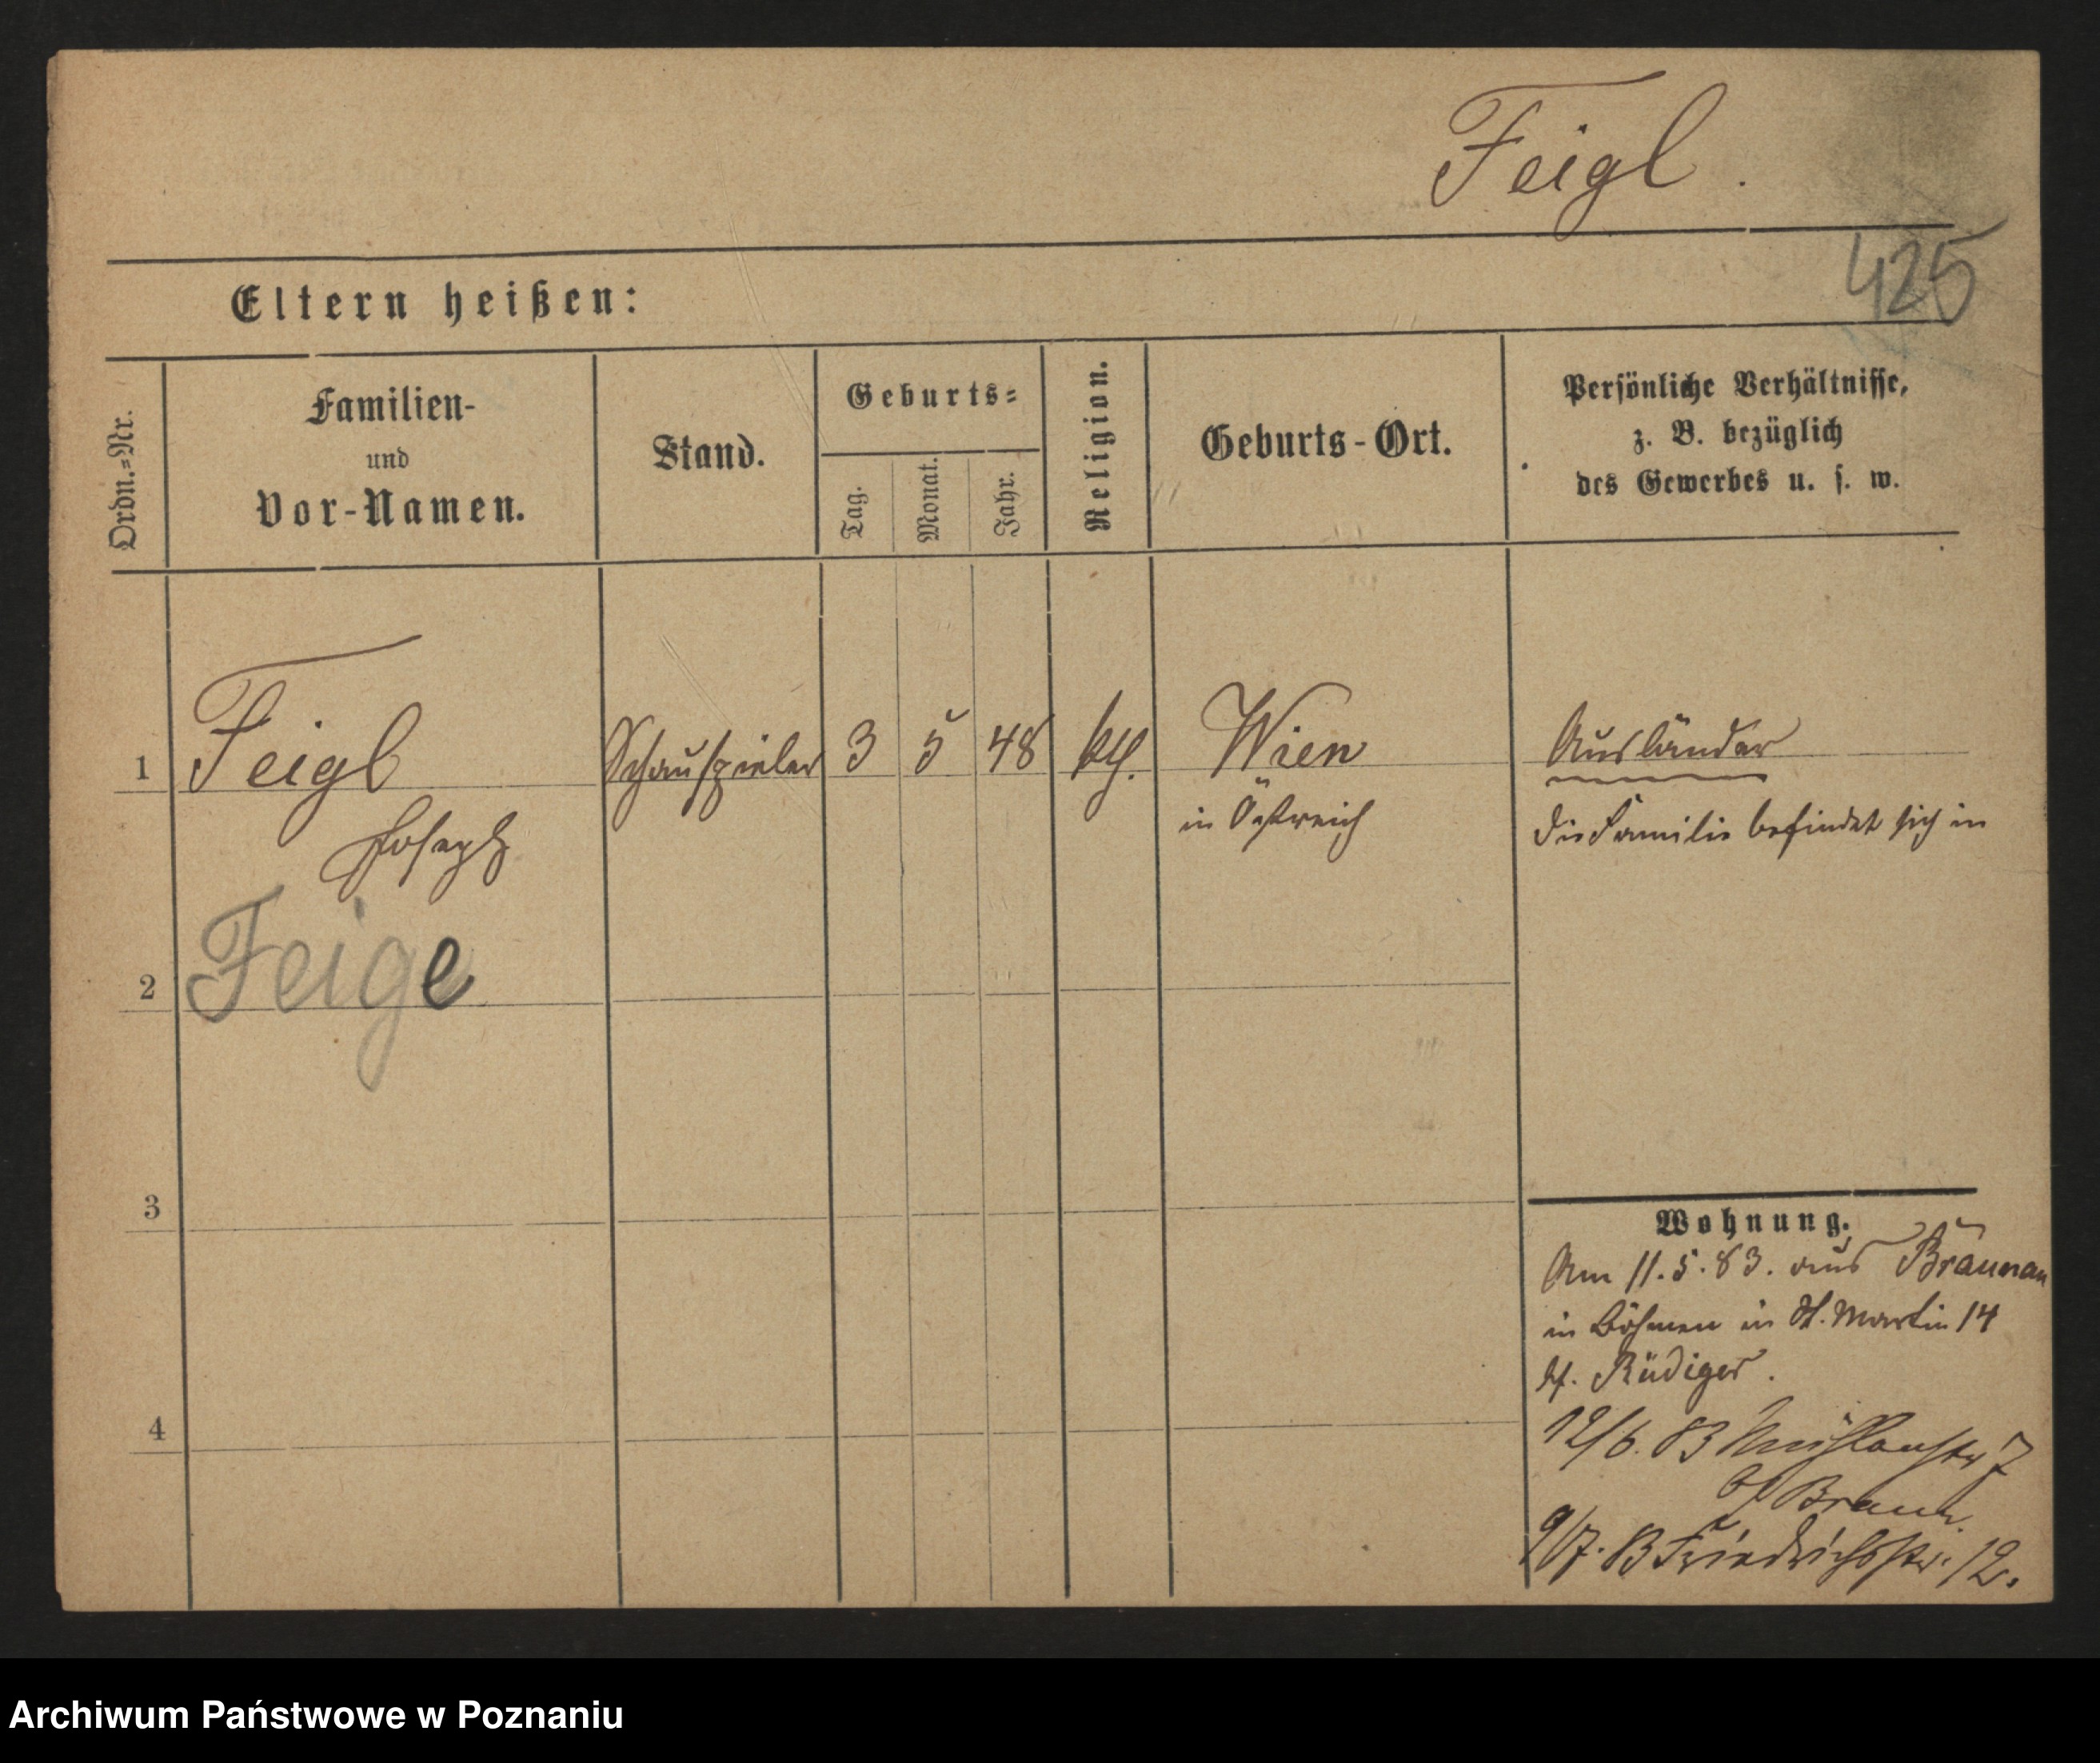 Feigl.
425
Eltern heißen:
Ordn.=Nr.
Familien-
und
Vor-Namen.
Stand.
Geburts=
Tag.
Monat.
Jahr.
Religion.
Geburts-Ort.
Persönliche Verhältnisse,
z. B. bezüglich
des Gewerbes u. s. w.
1
Feigl
Joseph
Schauspieler
3
5
48
kth.
Wien
in Östreich
Ausländer
die Familie befindet sich in
2
Feige
3
4
Wohnung.
Am 11.5.83. aus Braunau
in Böhmen in St. Martin 14
bf. Rüdiger.
12/6.83 Mühlenstr 7
b/ Braun.
9/7.83 Friedrichsstr. 12.
Archiwum Państwowe w Poznaniu